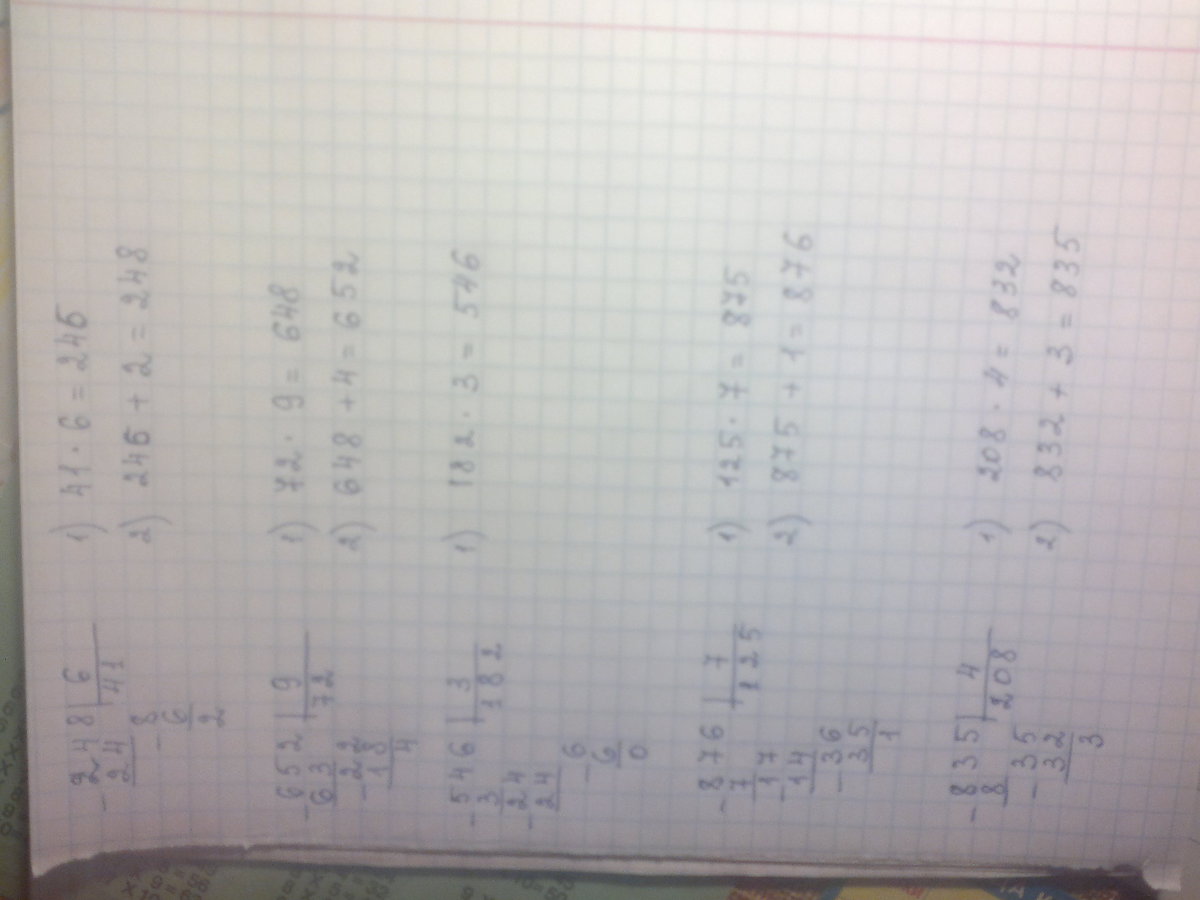 - 2 4 8 | 6
2 4 41
- 8
6
2
1) 41 · 6 = 246
2) 246 + 2 = 248
- 6 5 2 | 9
6 3 72
- 2 2
1 8
4
1) 72 · 9 = 648
2) 648 + 4 = 652
- 5 4 6 | 3
3 182
- 2 4
2 4
- 6
6
0
1) 182 · 3 = 546
- 8 7 6 | 7
7 125
- 1 7
1 4
- 3 6
3 5
1
1) 125 · 7 = 875
2) 875 + 1 = 876
- 8 3 5 | 4
8 208
- 3 5
3 2
3
1) 208 · 4 = 832
2) 832 + 3 = 835